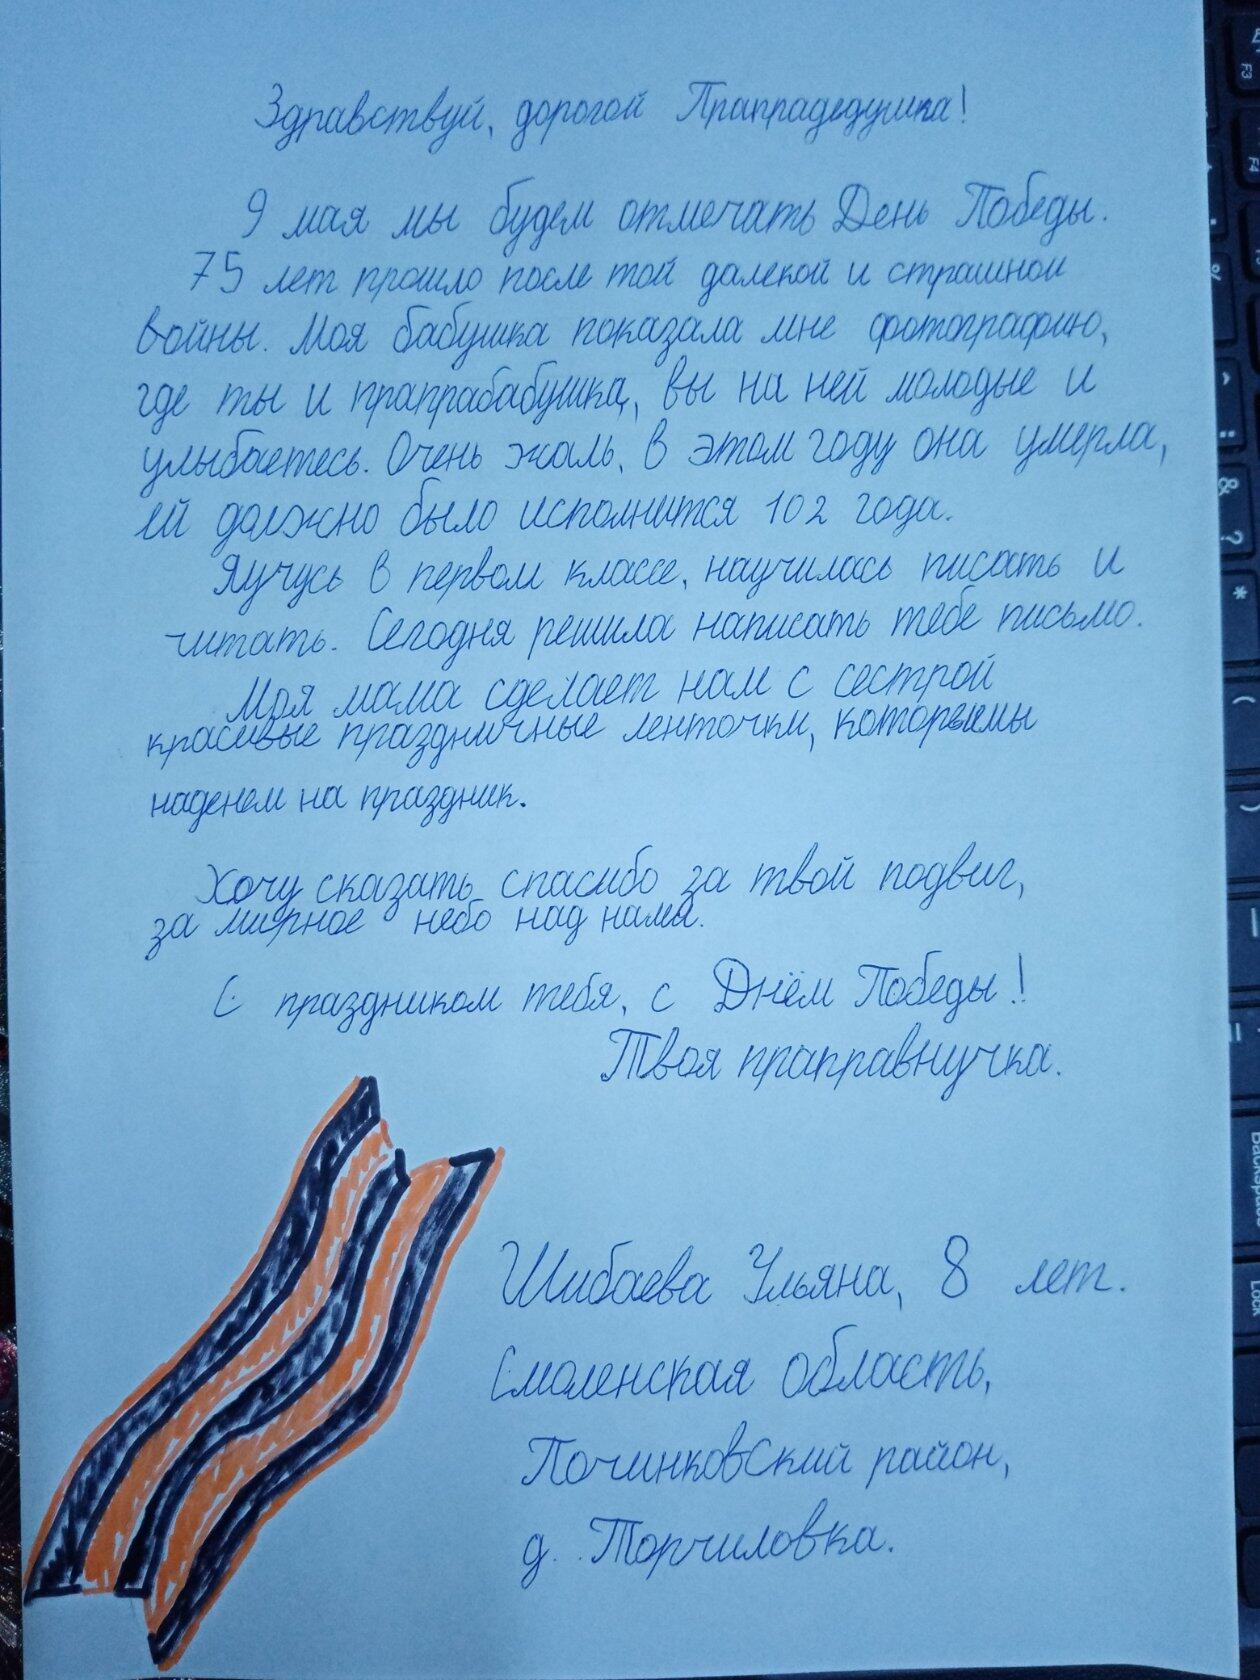 Здравствуй, дорогой Прапрадедушка!
9 мая мы будем отмечать День Победы.
75 лет прошло после той далекой и страшной
войны. Моя бабушка показала мне фотографию,
где ты и прапрабабушка, вы на ней молодые и
улыбаетесь. Очень жаль, в этом году она умерла,
ей должно было исполнится 102 года.
Я учусь в первом классе, научилась писать и
читать. Сегодня решила написать тебе письмо.
Моя мама сделает нам с сестрой
красивые праздничные ленточки, которые мы
наденем на праздник.
Хочу сказать спасибо за твой подвиг,
за мирное небо над нами.
С праздником тебя, с Днём Победы!
Твоя праправнучка.
Шибаева Ульяна, 8 лет.
Смоленская область,
Починковский район,
д. Торчиловка.
F3
F4
%
&
?
*
(
)
Backspace
Lock